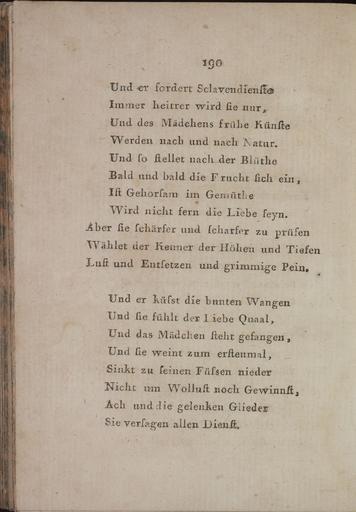 190
Und er fordert Sclavendienste
Immer heitrer wird sie nur,
Und des Mädchens frühe Künste
Werden nach und nach Natur.
Und so stellet nach der Blüthe
Bald und bald die Frucht sich ein,
Ist Gehorsam im Gemüthe
Wird nicht fern die Liebe seyn.
Aber sie schärfer und schärfer zu prüfen
Wählet der Kenner der Höhen und Tiefen
Lust und Entsetzen und grimmige Pein.
Und er küsst die bunten Wangen
Und sie fühlt der Liebe Quaal,
Und das Mädchen steht gefangen,
Und sie weint zum erstenmal,
Sinkt zu seinen Füssen nieder
Nicht um Wollust noch Gewinnst,
Ach und die gelenken Glieder
Sie versagen allen Dienst.